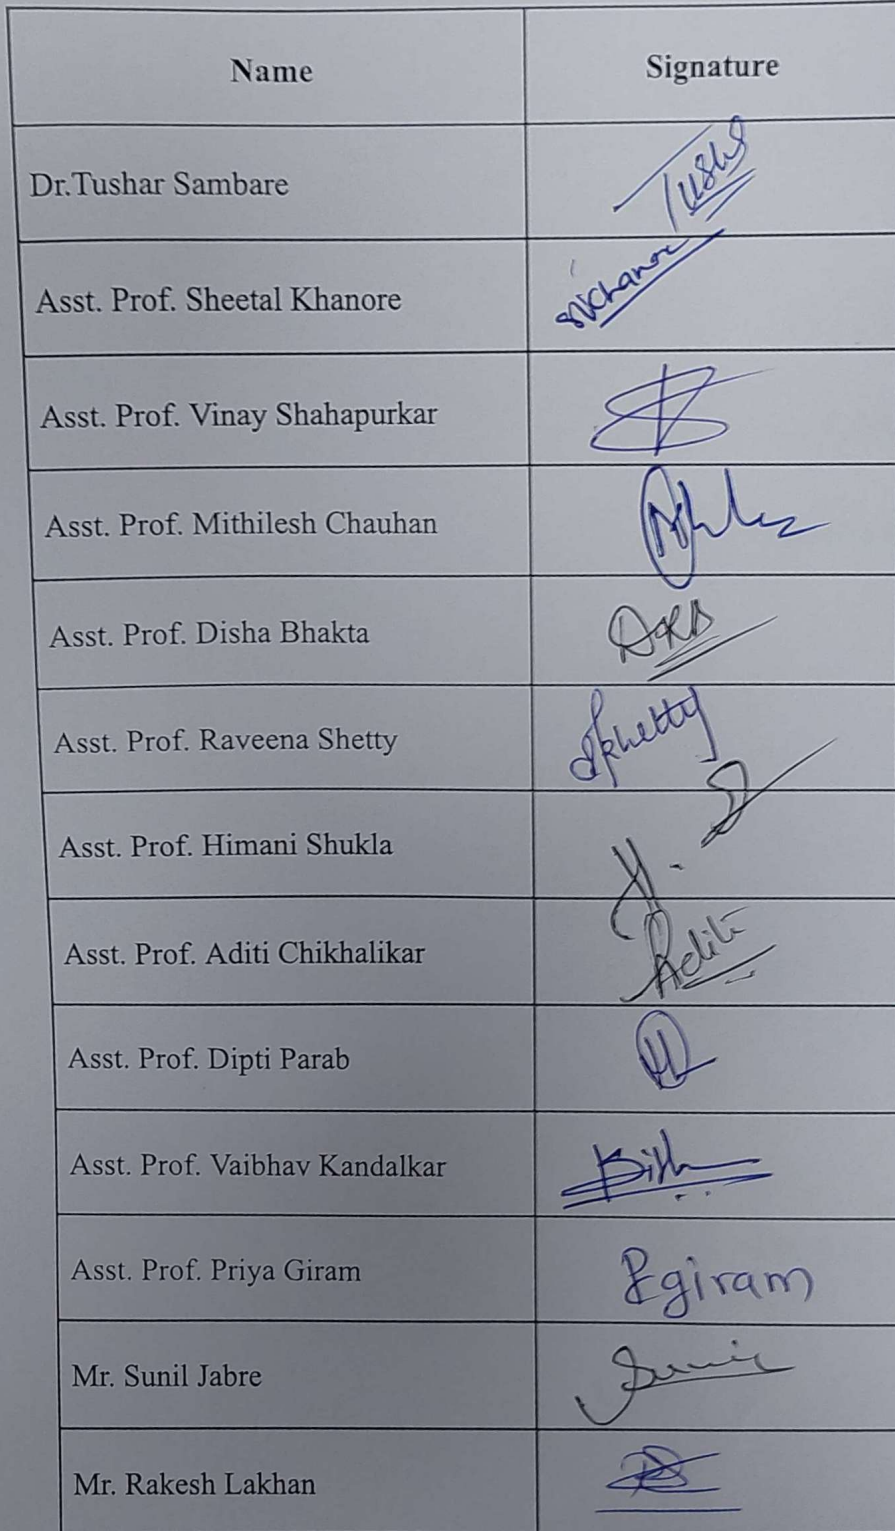 Name Signature
Dr.Tushar Sambare Tush
Asst. Prof. Sheetal Khanore SKhanore
Asst. Prof. Vinay Shahapurkar
Asst. Prof. Mithilesh Chauhan
Asst. Prof. Disha Bhakta
Asst. Prof. Raveena Shetty
Asst. Prof. Himani Shukla H. S
Asst. Prof. Aditi Chikhalikar Aditi
Asst. Prof. Dipti Parab
Asst. Prof. Vaibhav Kandalkar
Asst. Prof. Priya Giram Pgiram
Mr. Sunil Jabre Sunil
Mr. Rakesh Lakhan